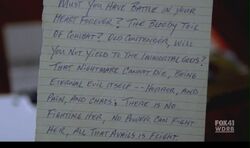 MUST YOU HAVE BATTLE IN YOUR
HEART FOREVER? THE BLOODY TOIL
OF COMBAT? OLD CONTENDER, WILL
YOU NOT YIELD TO THE IMMORTAL GODS?
THAT NIGHTMARE CANNOT DIE, BEING
ETERNAL EVIL ITSELF -- HORROR, AND
PAIN, AND CHAOS; THERE IS NO
FIGHTING HER, NO POWER CAN FIGHT
HER, ALL THAT AVAILS IS FLIGHT
FOX41
WDRB